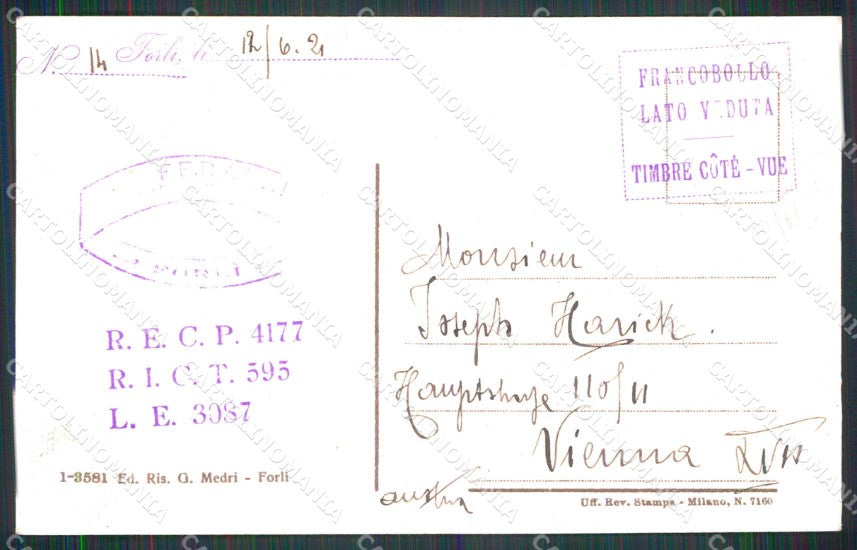 N. 14 Forlì, li 12/6.21
FRANCOBOLLO
LATO VEDUTA
TIMBRE CÔTÉ - VUE
FORLÌ
R. E. C. P. 4177
R. I. C. T. 595
L. E. 3087
1-3581 Ed. Ris. G. Medri - Forlì
Monsieur
Joseph Harick.
Hauptstrasse 110/11
Vienna
austria
Uff. Rev. Stampa - Milano, N. 7160
CARTOLINOMANIA